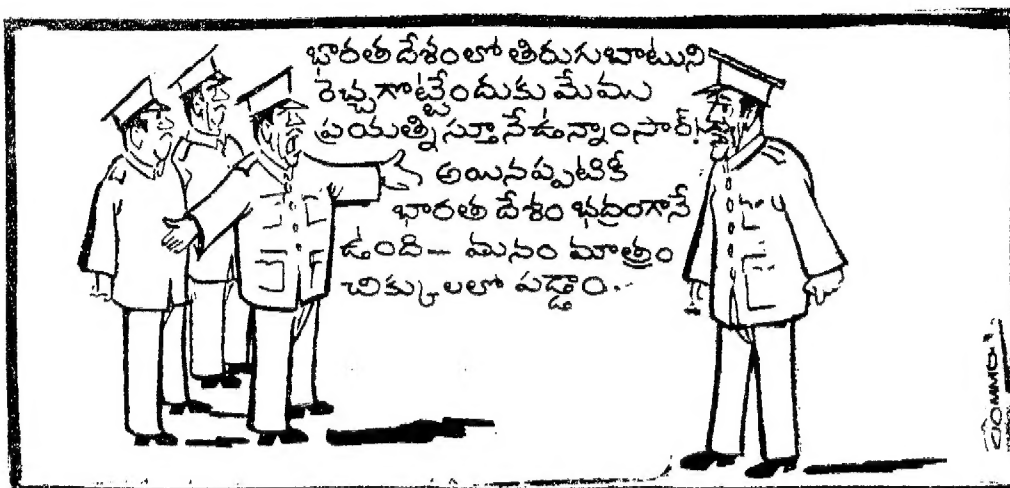 భారత దేశంలో తిరుగుబాటుని
రెచ్చగొట్టేందుకు మేము
ప్రయత్నిస్తూనే ఉన్నాంసార్!
అయినప్పటికీ
భారత దేశం భద్రంగానే
ఉంది- మనం మాత్రం
చిక్కులలో పడ్డాం..